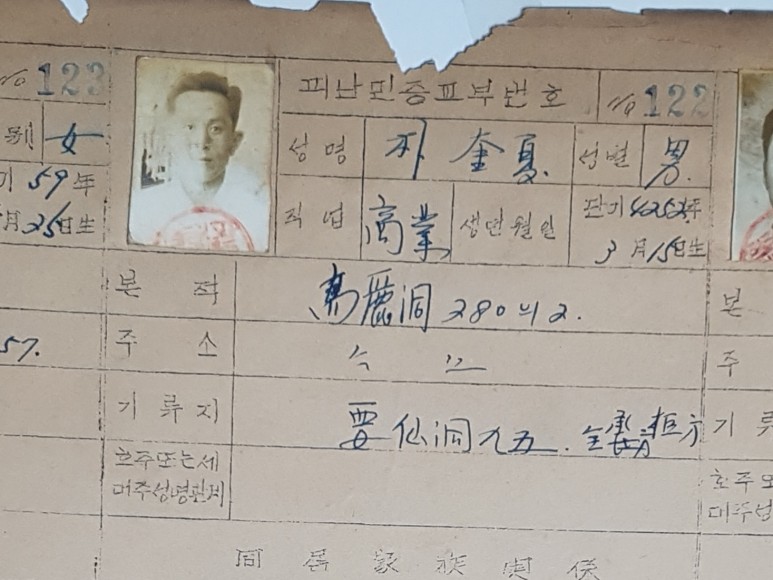 No 123
피난민증교부번호 No 122
別 女
성명 朴奎夏 성별 男
기 59年
月 25日生
직업 商業 생년월일 단기 4252年 3月 15日生
본적 高麗洞 280의 2.
본
57.
주소
주
기류지 要仙洞 九五. 方
기류
호주또는세
대주성명관계
호주또
대주성
同居家族関係